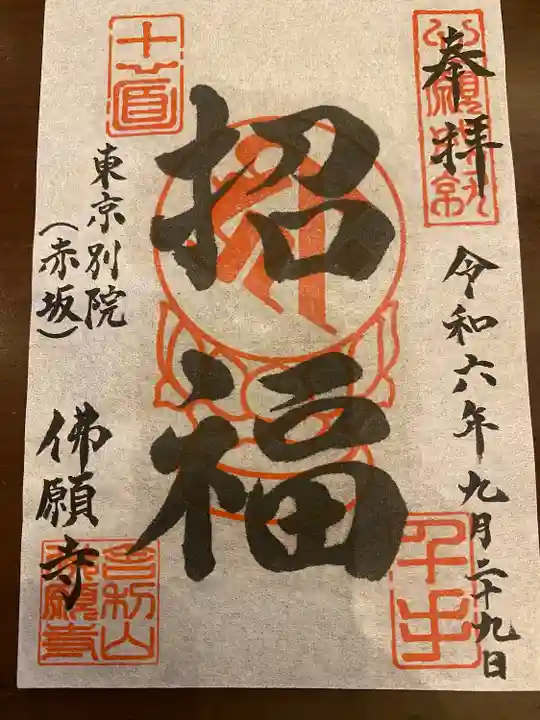 奉拝
令和六年九月二十九日
招福
十一面
東京別院
(赤坂)
佛願寺